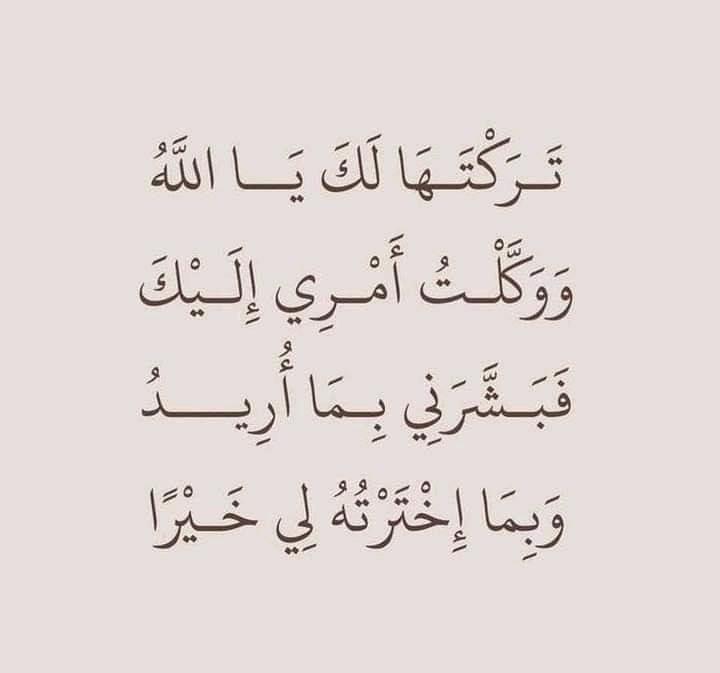 تَـرَكْتَـهَا لَكَ يَـــا اللَّهُ
وَوَكَّلْـتُ أَمْـرِي إِلَـيْكَ
فَبَـشَّرَنِي بِـمَا أُرِيـــدُ
وَبِمَا إِخْتَرْتُهُ لِي خَـيْرًا